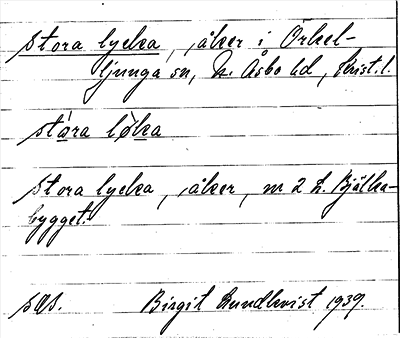 Stora lycka, åker i Örkel-
ljunga sn, N. Åsbo hd, Krist. l.
stára lỳka
Stora lycka, åker, nr 2 L. Bjälka-
bygget.
Birgit Lundkvist 1939.